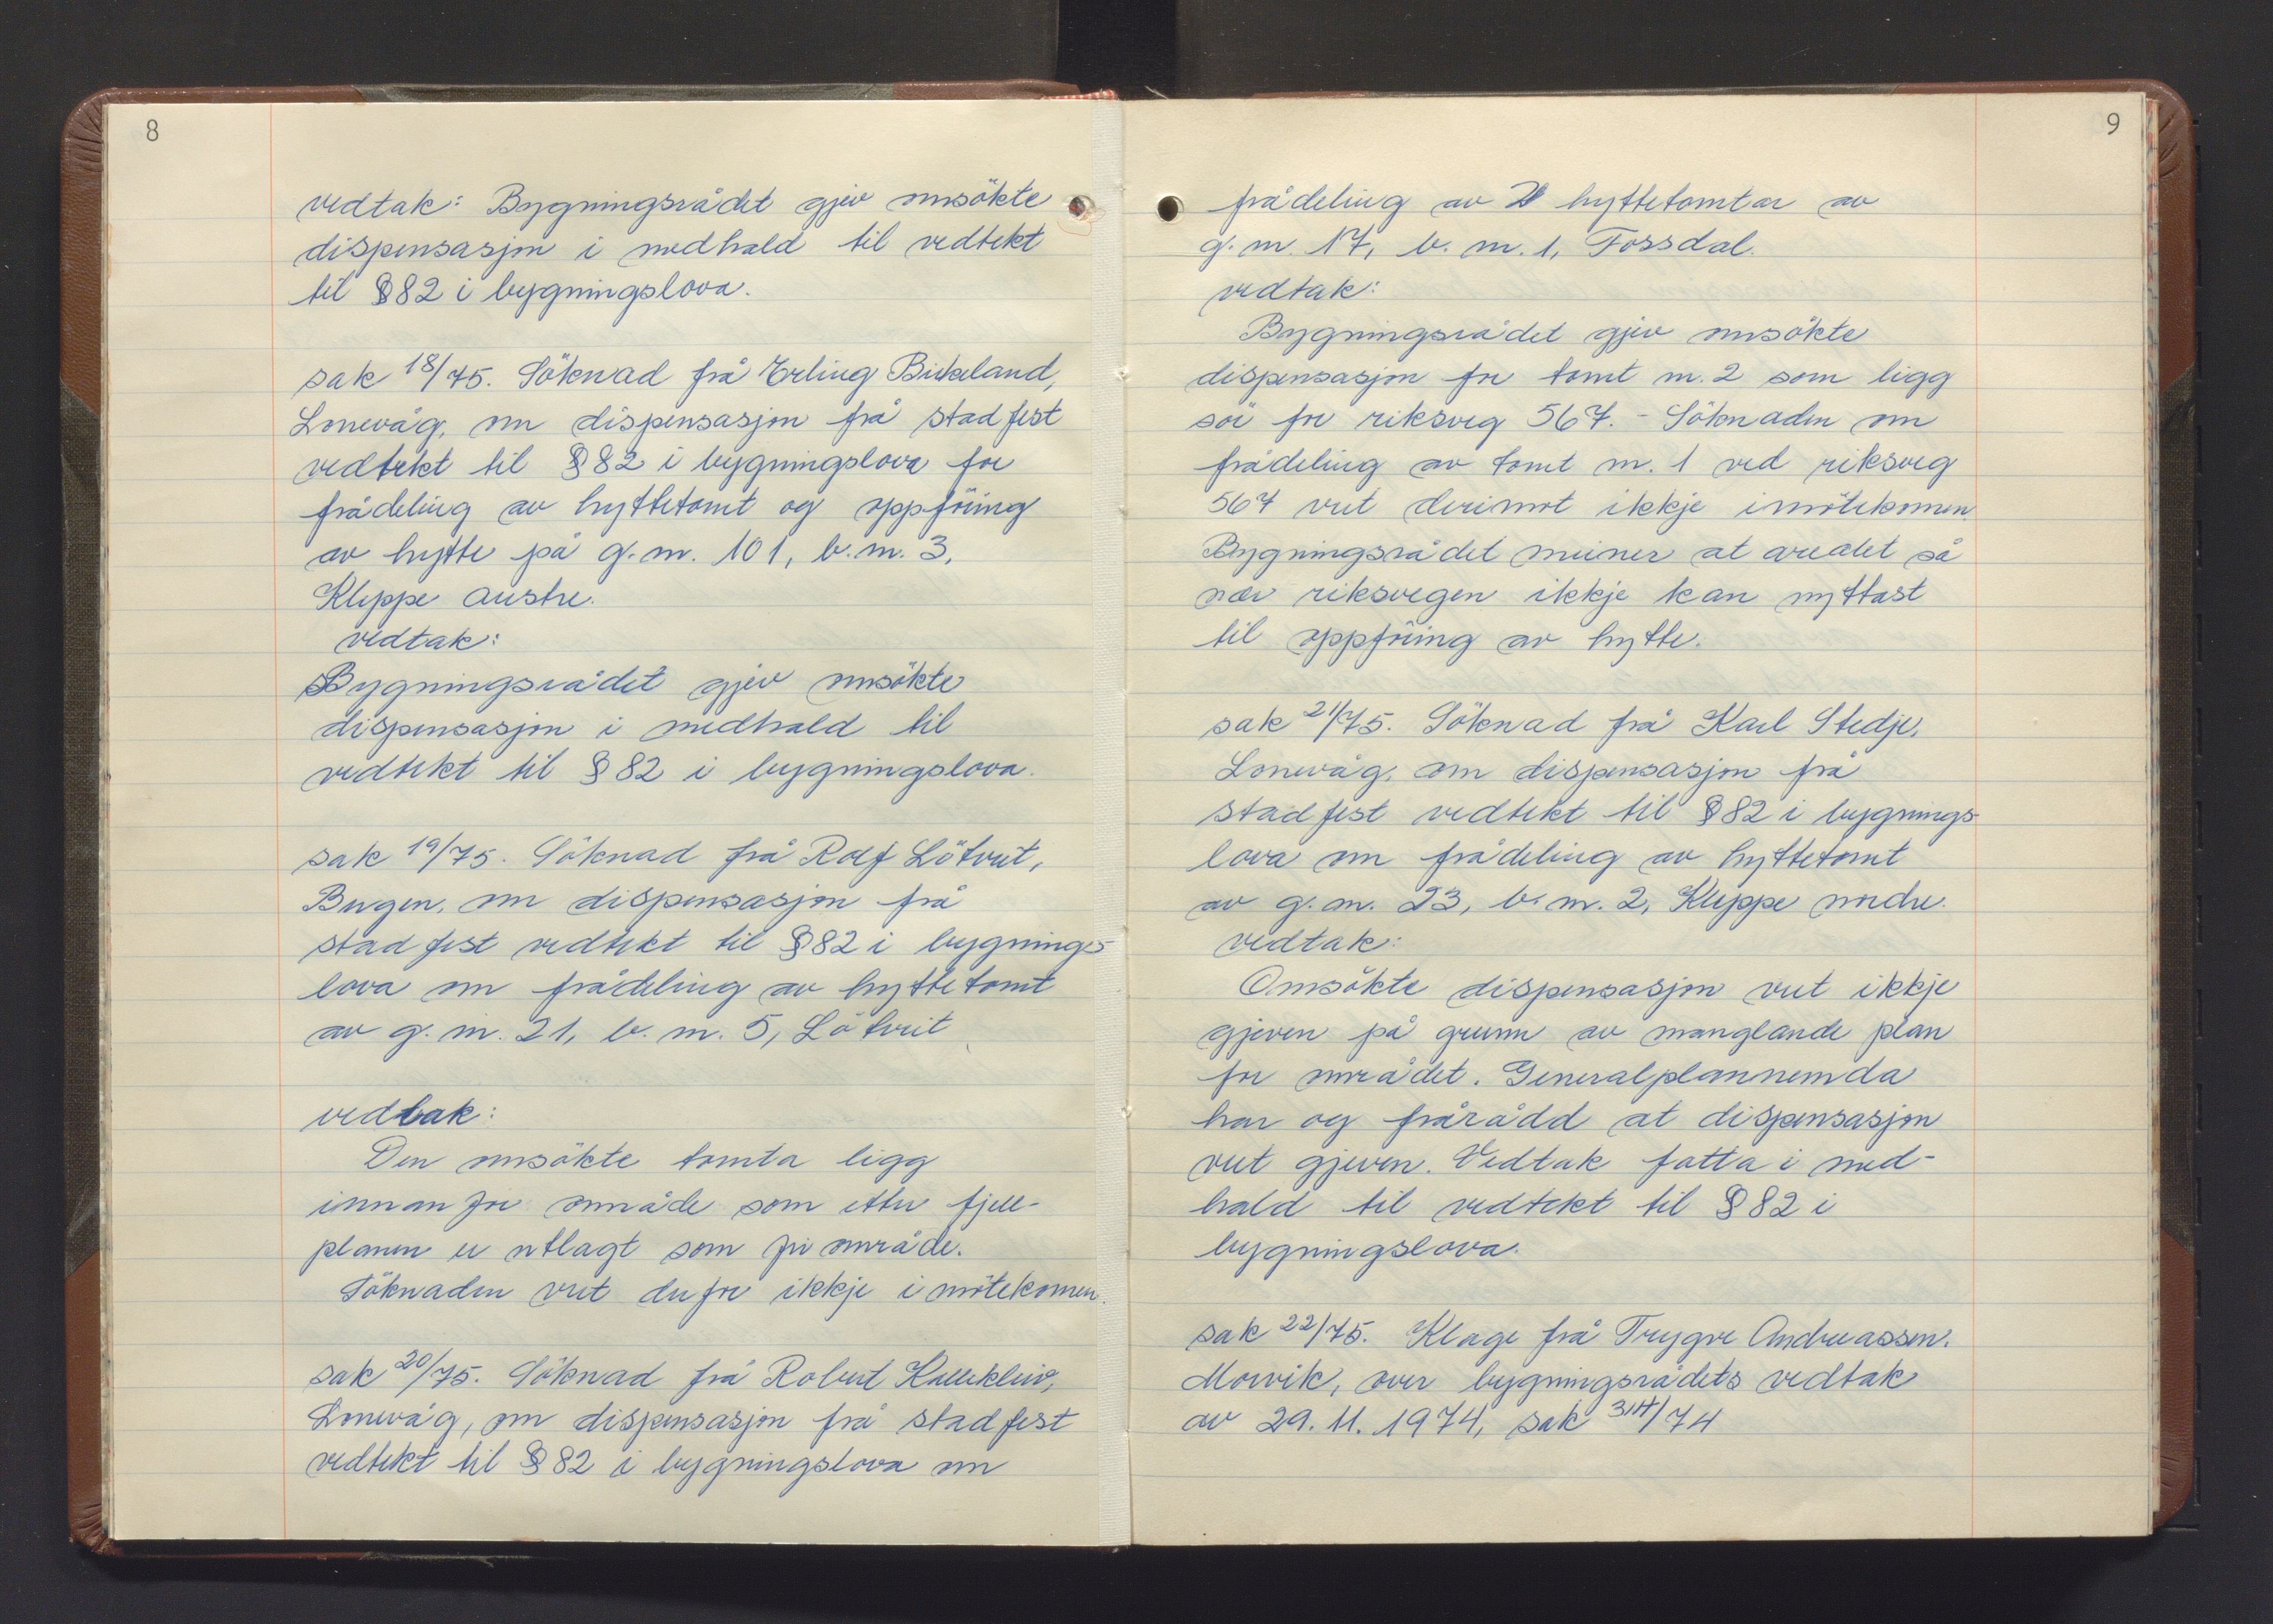 8
vedtak: Bygningsrådet gjev omsökte
dispensasjon i medhald til vedtekt
til § 82 i bygningslova.
sak 18/75. Söknad frå Erling Birkeland,
Lonevåg, om dispensasjon frå stadfest
vedtekt til § 82 i bygningslova for
frådeling av hyttetomt og oppföring
av hytte på g.m. 101, b.m. 3,
Kleppe austre.
vedtak:
Bygningsrådet gjev omsökte
dispensasjon i medhald til
vedtekt til § 82 i bygningslova.
sak 19/75. Söknad frå Rolf Lötveit,
Bugen, om dispensasjon frå
stadfest vedtekt til § 82 i bygnings-
lova om frådeling av hyttetomt
av g.m. 21, b.m. 5, Lötveit
vedtak:
Den omsökte tomta ligg
innanfor område som etter fjell-
planen er utlagt som friområde.
Söknaden vert derfor ikkje imötekomen.
sak 20/75. Söknad frå Robert Kallekleiv,
Lonevåg, om dispensasjon frå stadfest
vedtekt til § 82 i bygningslova om
9
frådeling av 2 hyttetomtar av
g.m. 17, b.m. 1, Fossdal.
vedtak:
Bygningsrådet gjev omsökte
dispensasjon for tomt m. 2 som ligg
sör for riksveg 567. - Söknaden om
frådeling av tomt m. 1 ved riksveg
567 vert derimot ikkje imötekomen.
Bygningsrådet meiner at arealet så
nær riksvegen ikkje kan nyttast
til oppföring av hytte.
sak 21/75. Söknad frå Karl Stedje,
Lonevåg, om dispensasjon frå
stadfest vedtekt til § 82 i bygnings-
lova om frådeling av hyttetomt
av g.m. 23, b.m. 2, Kleppe nordre.
vedtak:
Omsökte dispensasjon vert ikkje
gjeven på grunn av manglande plan
for området. Generalplannemda
har og frårådd at dispensasjon
vert gjeven. Vedtak fatta i med-
hald til vedtekt til § 82 i
bygningslova.
sak 22/75. Klage frå Trygve Andreassen,
Morvik, over bygningsrådets vedtak
av 29.11.1974, sak 314/74